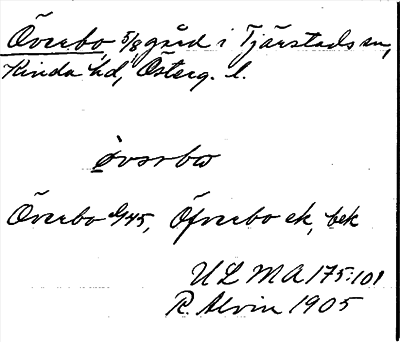 Överbo, 5/8 gård i Tjärstads sn,
Kinda hd, Österg. l.
övərbω
Överbo 1/45, Öfverbo ek, bek
ULMA 175:101
R. Alvin 1905